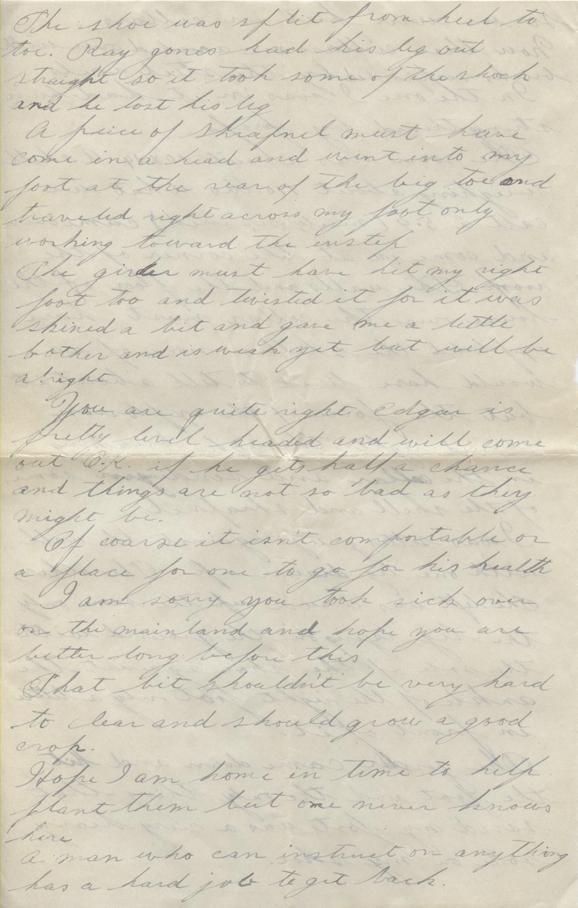 The shoe was split from heel to
toe. Ray Jones had his leg out
straight so it took some of the shock
and he lost his leg
A peice of shrapnel must have
come in a head and went into my
foot at the rear of the big toe and
traveled right across my foot only
working toward the instep
The girder must have hit my right
foot too and twisted it for it was
skined a bit and gave me a little
bother and is weak yet but will be
alright
You are quite right Edgar is
pretty level headed and will come
out O.K. if he gets half a chance
and things are not so bad as they
might be.
Of coarse it isn't comfortable or
a place for one to go for his health
I am sorry you took sick over
on the mainland and hope you are
better long before this
That bit shouldn't be very hard
to clear and should grow a good
crop.
Hope I am home in time to help
plant them but one never knows
here
A man who can instruct on anything
has a hard job to get back.